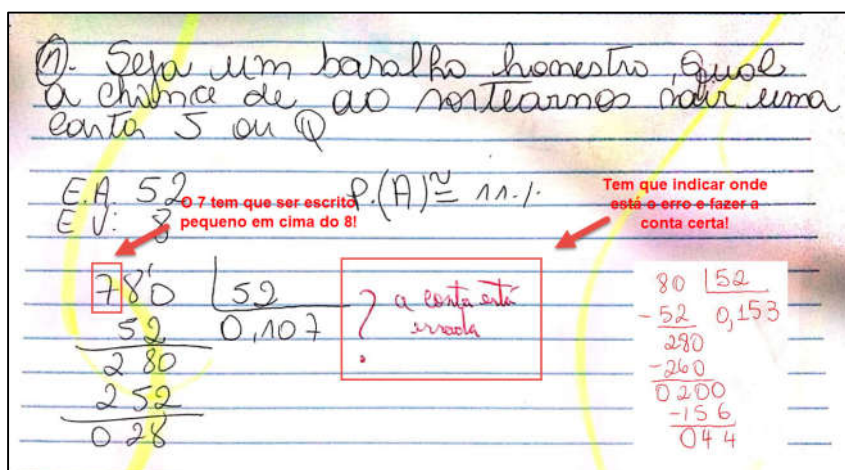 ①. Seja um baralho honestro, Qual
a chance de ao sortearmos sair uma
carta 5 ou Q
E.A. 52
E V: 8
P.(A) ≅ 11.%
O 7 tem que ser escrito
pequeno em cima do 8!
Tem que indicar onde
está o erro e fazer a
conta certa!
780 | 52
52 0,107
280
252
028
? a conta está
errada
80 | 52
-52 0,153
280
-260
0200
-156
044